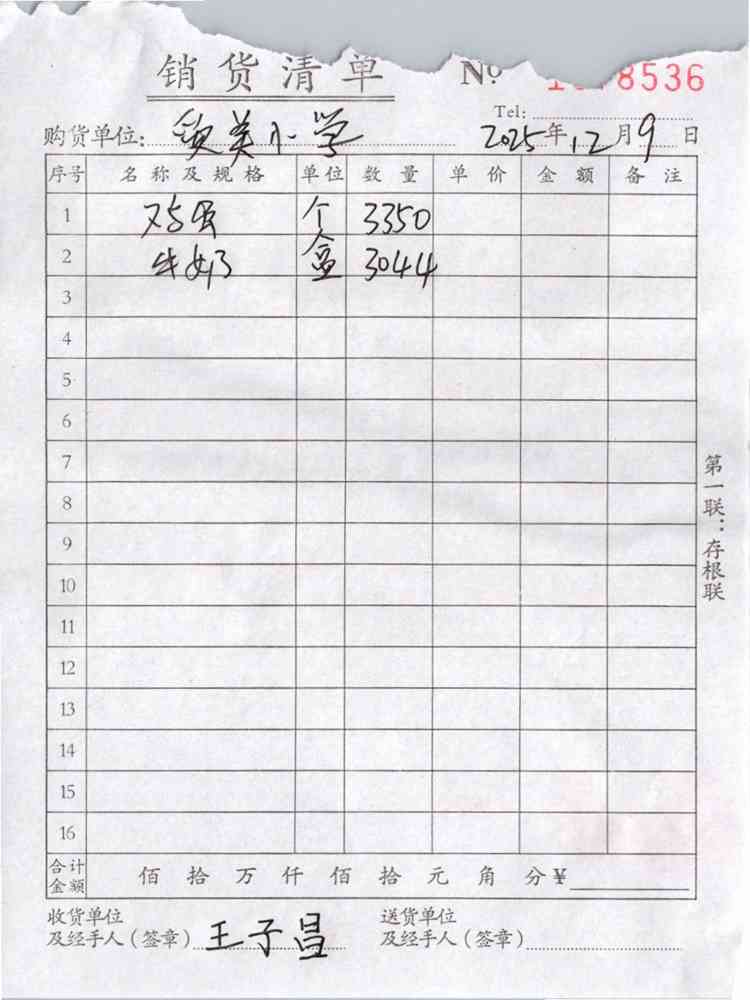 销货清单 Nº 8536
Tel:
购货单位: 美小学 2025年12月9日
序号 名称及规格 单位 数量 单价 金额 备注
1 鸡蛋 个 3350
2 牛奶 盒 3044
3
4
5
6
7
8
9
10
11
12
13
14
15
16
第一联：存根联
合计金额 佰 拾 万 仟 佰 拾 元 角 分 ¥
收货单位 送货单位
及经手人(签章) 王子昌 及经手人(签章)